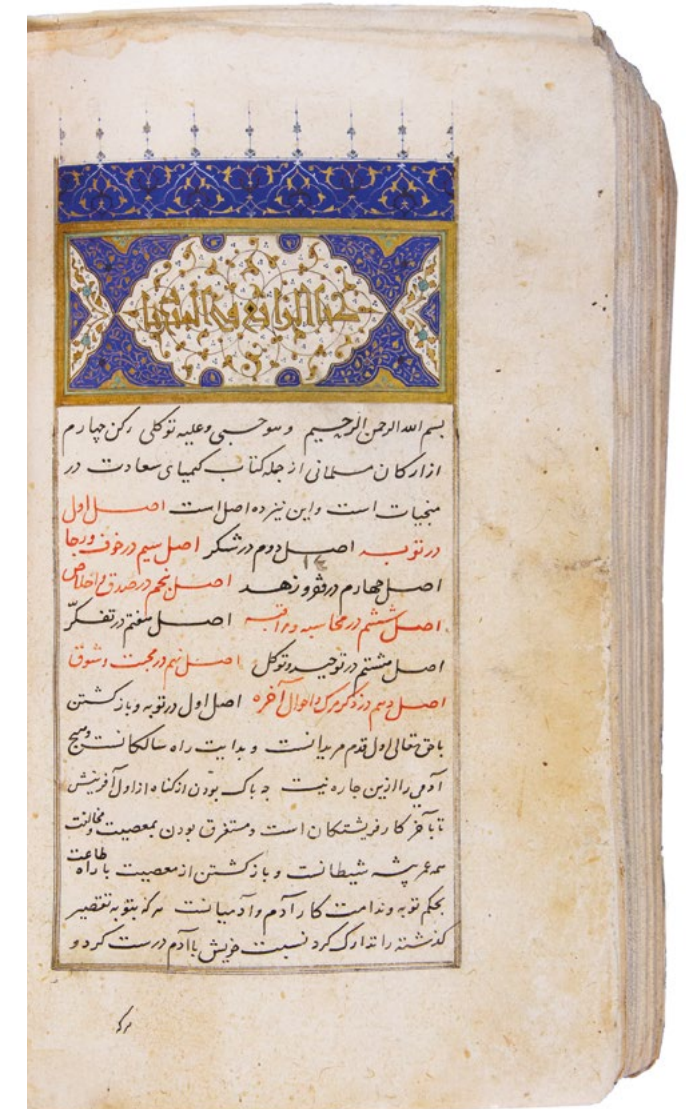 كتاب الرابع في المنجيات
بسم الله الرحمن الرحیم وهو حسبی وعلیه توکلی رکن چهارم
از ارکان مسلمانی از جمله کتاب کیمیای سعادت در
منجیات است واین نیز ده اصل است اصل اول
در توبه اصل دوم در شکر اصل سیم در خوف ورجا
اصل چهارم در فقر و زهد اصل پنجم در صدق و اخلاص
اصل ششم در محاسبه و مراقبه اصل هفتم در تفکّر
اصل هشتم در توحید و توکل اصل نهم در محبت و شوق
اصل دهم در ذکر مرک و احوال آخره اصل اول در توبه و باز کشتن
با حق تعالی اول قدم مریدانست و بدایت راه سالکانست وهیچ
آدمی را ازین چاره نیست چه پاک بودن از کناه از اول آفرینش
تا بآخر کار فریشتکان است ومستغرق بودن بمعصیت ومخالفت
همه عمر پیشه شیطانست و باز کشتن از معصیت با راه طاعت
بحکم توبه وندامت کار آدم وآدمیانست هر که بتوبه تقصیر
کذشته را تدارک کرد نسبت خویش باآدم درست کرد و